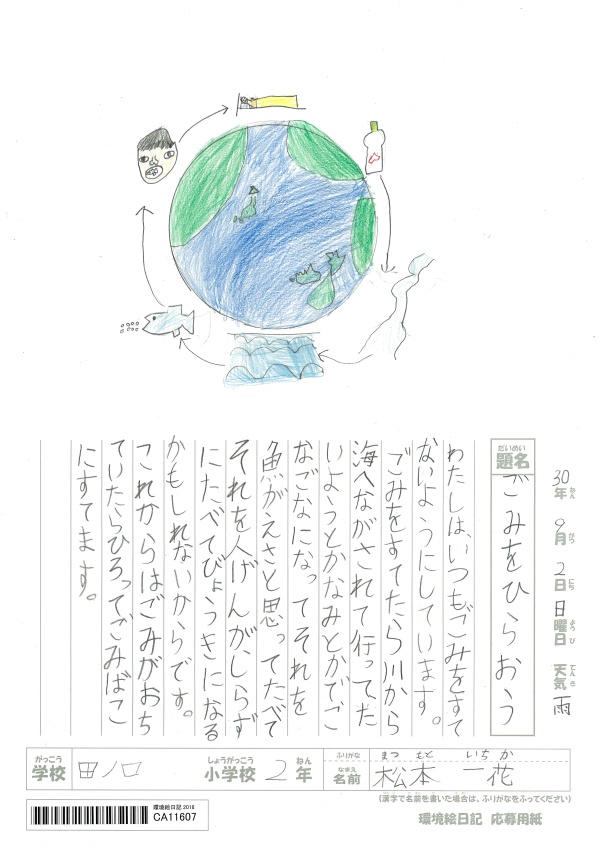 30年 9月 2日 日曜日 天気 雨
ねん がつ にち ようび てんき
だいめい
題名
ごみをひらおう
わたしは、いつもごみをすて
ないようにしています。
ごみをすてたら川から
海へながされて行ってた
いようとかなみとかでご
なごなになってそれを
魚がえさと思ってたべて
それを人げんがしらず
にたべてびょうきになる
かもしれないからです。
これからはごみがおち
ていたらひろってごみばこ
にすてます。
がっこう
学校
田ノ口
しょうがっこう
小学校
2
ねん
年
ふりがな
まつもと いちか
なまえ
名前
松本 一花
(漢字で名前を書いた場合は、ふりがなをふってください)
環境絵日記 2018
CA11607
環境絵日記 応募用紙